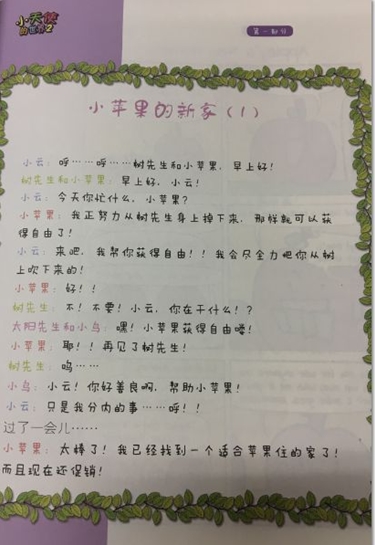 小天使
的世界2
第一部分
小苹果的新家（1）
小云：呼……呼……树先生和小苹果，早上好！
树先生和小苹果：早上好，小云！
小云：今天你忙什么，小苹果？
小苹果：我正努力从树先生身上掉下来，那样就可以获
得自由了！
小云：来吧，我帮你获得自由！！我会尽全力把你从树
上吹下来的！
小苹果：好！！
树先生：不！不要！小云，你在干什么！？
太阳先生和小鸟：嘿！小苹果获得自由喽！
小苹果：耶！！再见了树先生！
树先生：呜……
小鸟：小云！你好善良啊，帮助小苹果！
小云：只是我分内的事……呼！！
过了一会儿……
小苹果：太棒了！我已经找到一个适合苹果住的家了！
而且现在还促销！